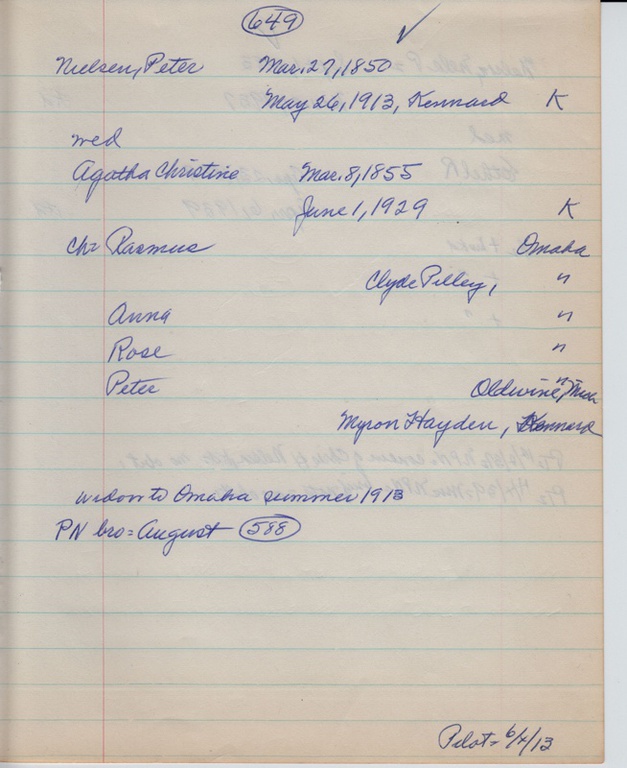 649 ✓
Nielsen, Peter Mar. 27, 1850
May 26, 1913, Kennard K
wed
Agatha Christine Mar. 8, 1855
June 1, 1929 K
ch= Rasmus Omaha
Clyde Pilley, "
Anna "
Rose "
Peter Oldwine,
Myron Hayden, Kennard
widow to Omaha summer 1913
PN bro = August 588
Pilot = 6/4/13